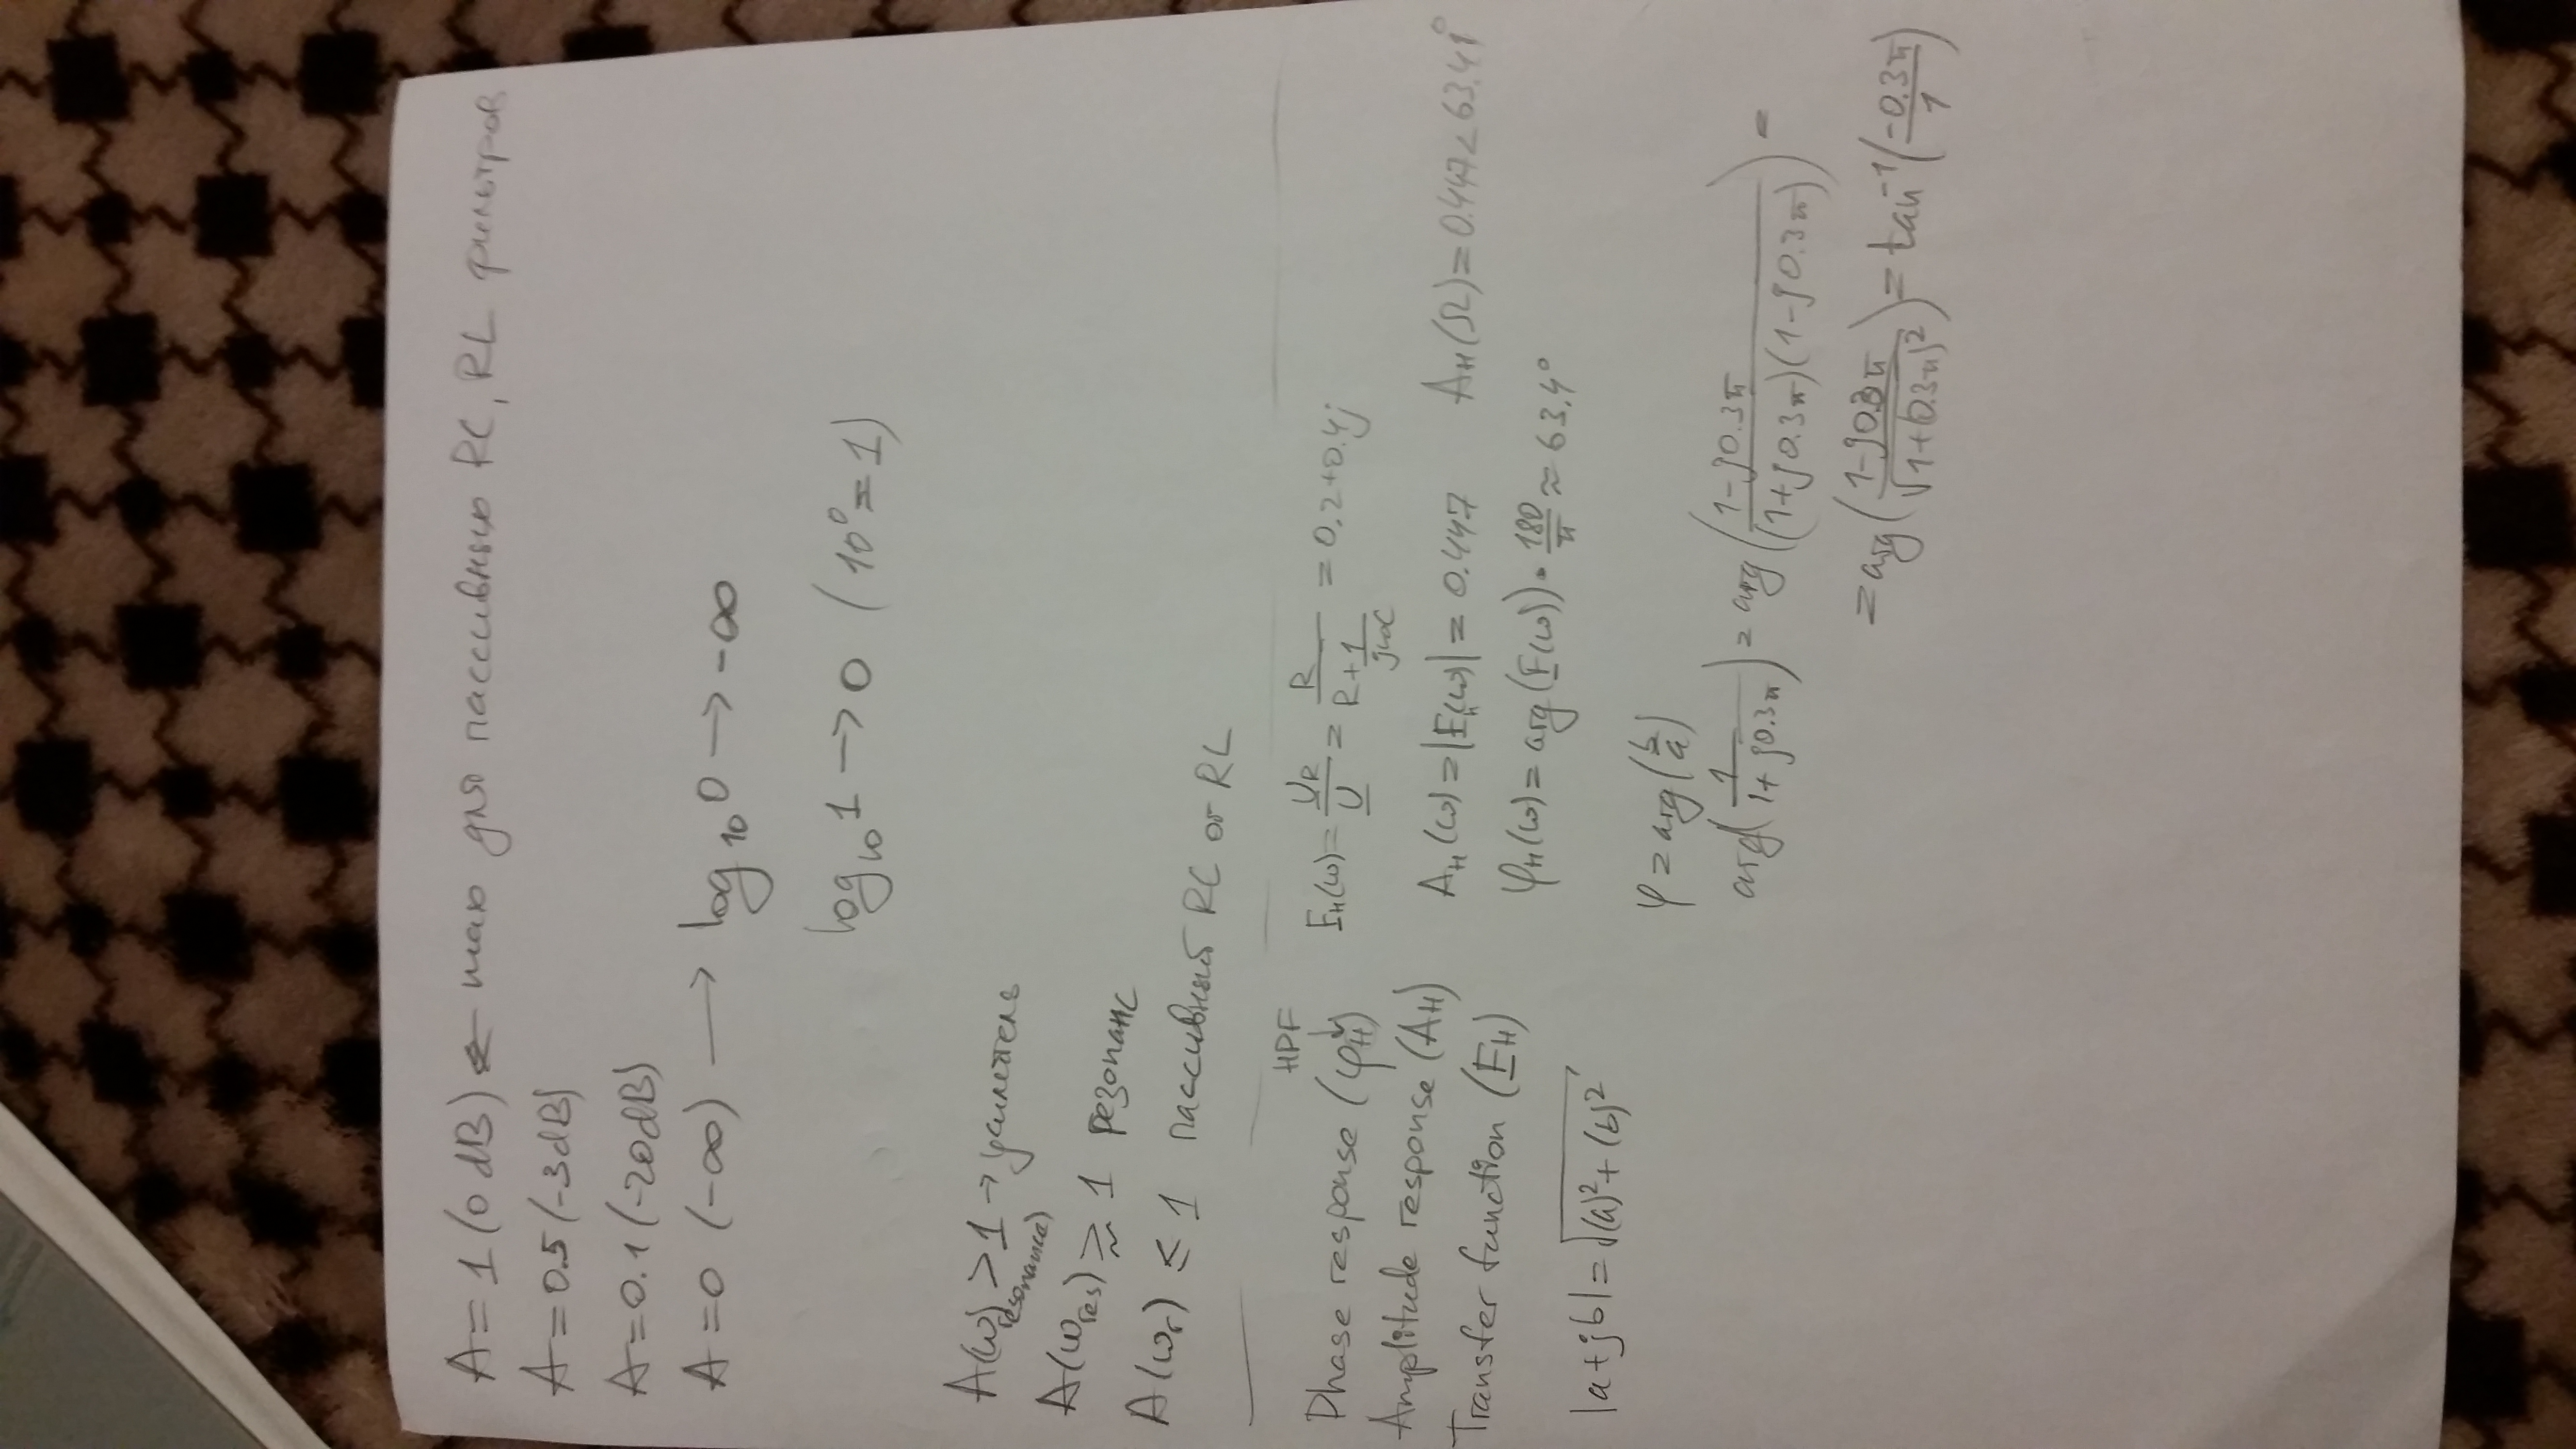 A = 1 (0 dB) ← max для пассивных RC, RL фильтров
A = 0.5 (-3dB)
A = 0.1 (-20dB)
A = 0 (-∞) → log₁₀ 0 → -∞
log₁₀ 1 → 0 (10⁰ = 1)
A(ω) > 1 → усилитель
(resonance)
A(ω_res) ⪆ 1 резонанс
A(ω_r) ≤ 1 пассивный RC or RL
HPF
↓
Phase response (φ_H)
Amplitude response (A_H)
Transfer function (F_H)
|a+jb| = √((a)² + (b)²)
F_H(ω) = U_R/U = R/(R + 1/(jωC)) = 0.2+0.4j
A_H(ω) = |F_H(ω)| = 0.447 A_H(Ω) = 0.447∠63.41°
φ_H(ω) = arg(F(ω)) · 180/π ≈ 63.4°
φ = arg(b/a)
arg(1/(1+j0.3π)) = arg((1-j0.3π)/((1+j0.3π)(1-j0.3π))) =
= arg((1-j0.3π)/√(1+(0.3π)²)) = tan⁻¹(-0.3π/1)